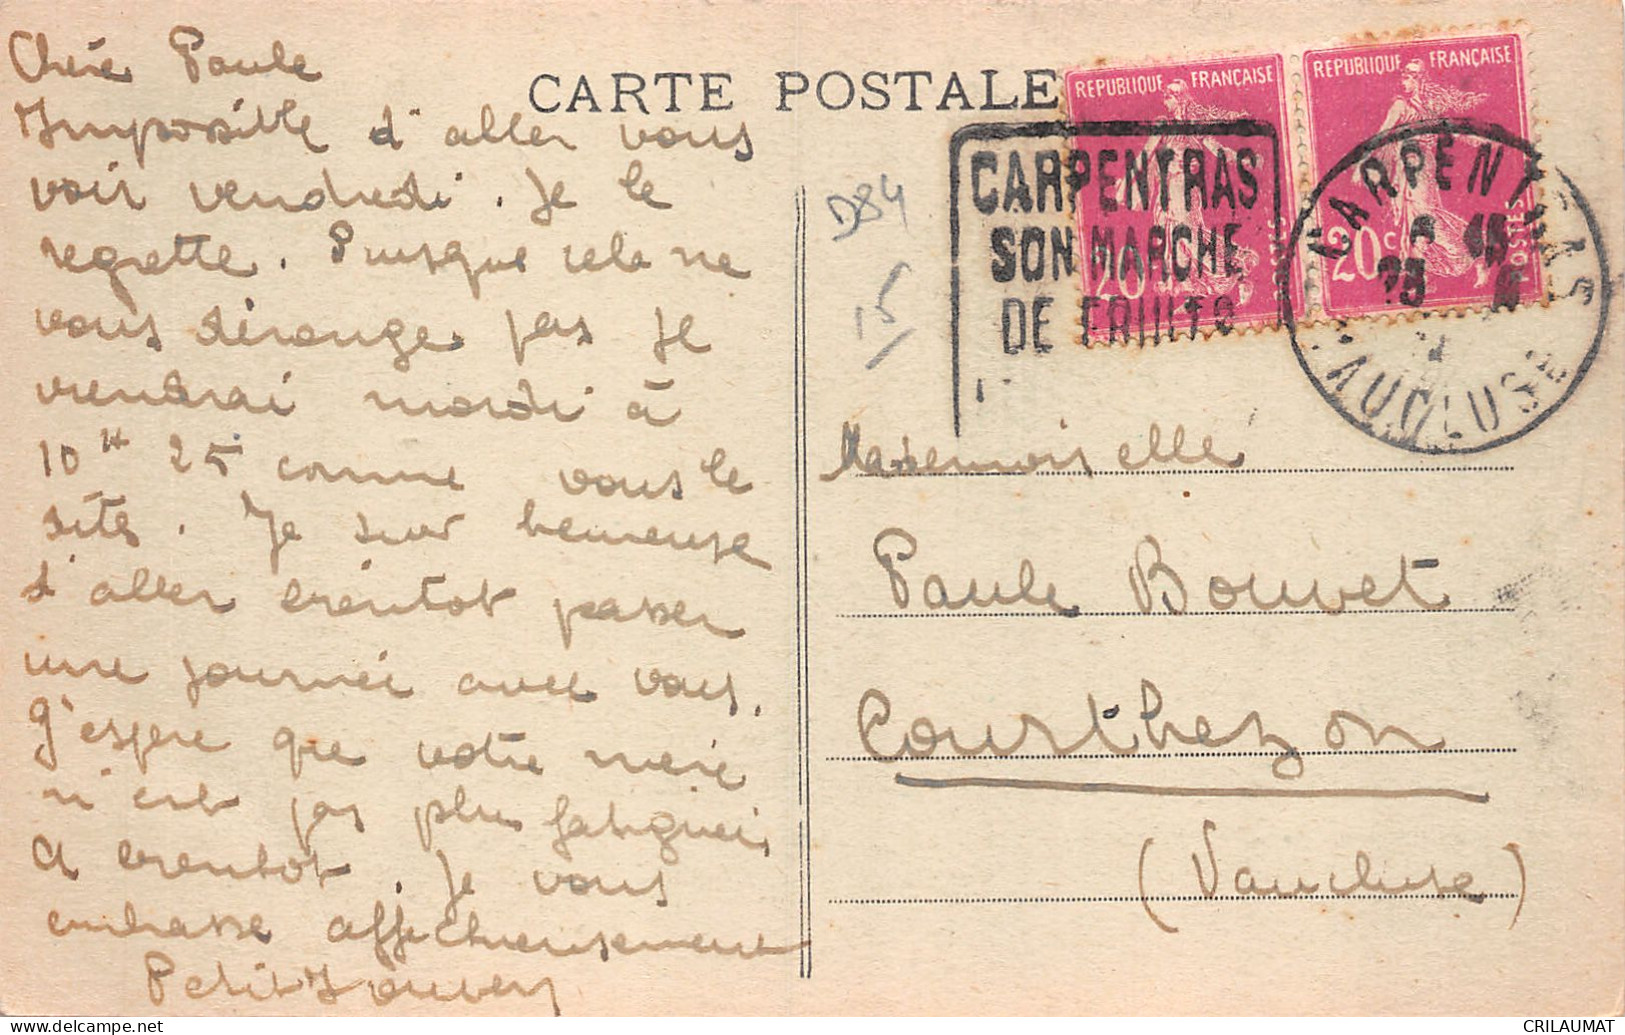 Chère Paule
Impossible d'aller vous
voir vendredi. Je le
regrette. Puisque cela ne
vous dérange pas je
viendrai mardi à
10H 25 comme vous le
dites. Je suis heureuse
d'aller bientot passer
une journée avec vous.
J'espère que votre mère
n'est pas plus fatiguée,
A bientot. Je vous
embrasse affectueusement
CARTE POSTALE
REPUBLIQUE FRANÇAISE
20
POSTES
REPUBLIQUE FRANÇAISE
20c
POSTES
CARPENTRAS
SON MARCHE
DE FRUITS
CARPENTRAS
VAUCLUSE
D84
15
Mademoiselle
Paule Bouvet
Courthezon
(Vaucluse)
delcampe.net
CRILAUMAT